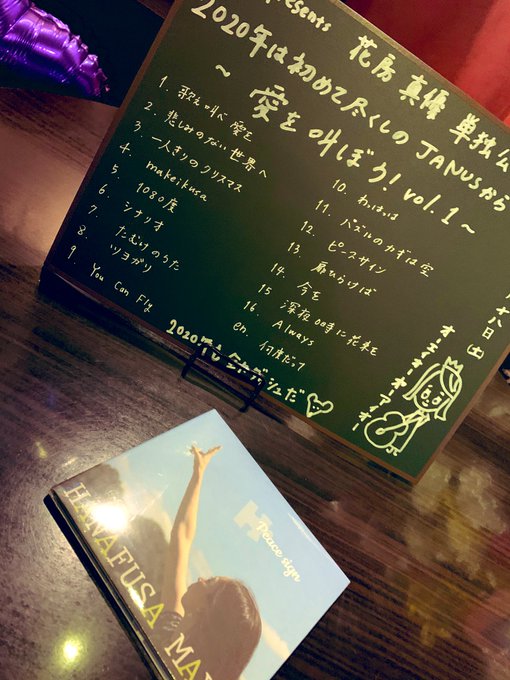 presents 花房真優 単独公
2020年は初めて尽くしの JANUSから
～ 愛を叫ぼう! vol.1 ～
1. 歌え叫べ愛を
2. 悲しみのない世界へ
3. 一人きりのクリスマス
4. makeikusa
5. 1080度
6. シナリオ
7. たむけのうた
8. ツヨガリ
9. You Can Fly
10. わははは
11. パズルのかずは空
12. ピースサイン
13. 扉ひらけば
14. 今を
15. 深夜00時に花束を
16. Always
en. 何度だって
十八日 ㊏
オーエオーオアィオー
2020
ダッシュだ
Peace sign
HANAFUSA MA